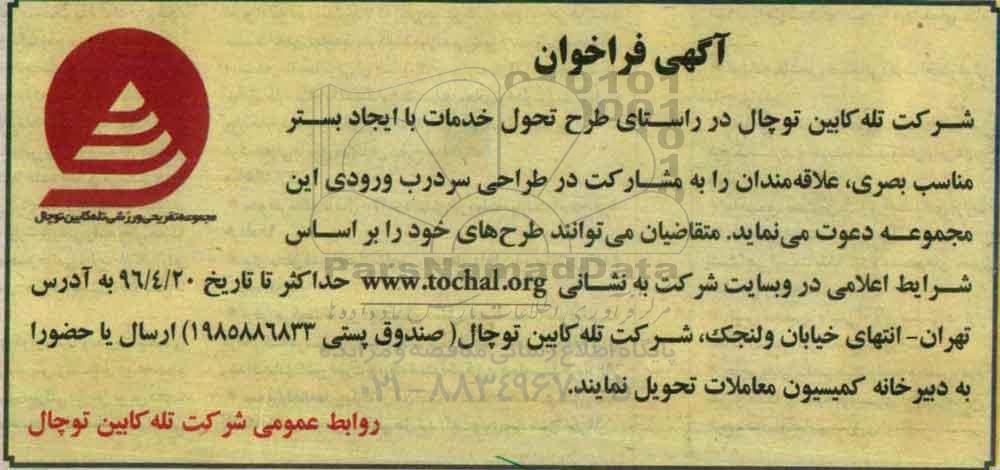 آگهی فراخوان
شرکت تله کابین توچال در راستای طرح تحول خدمات با ایجاد بستر
مناسب بصری، علاقه‌مندان را به مشارکت در طراحی سردرب ورودی این
مجموعه دعوت می‌نماید. متقاضیان می‌توانند طرح‌های خود را بر اساس
شرایط اعلامی در وبسایت شرکت به نشانی www.tochal.org حداکثر تا تاریخ ۹۶/٤/۲۰ به آدرس
تهران- انتهای خیابان ولنجک، شرکت تله کابین توچال( صندوق پستی ۱۹۸۵۸۸٦۸۳۳) ارسال یا حضورا
به دبیرخانه کمیسیون معاملات تحویل نمایند.
روابط عمومی شرکت تله کابین توچال
مجموعه تفریحی ورزشی تله کابین توچال
ParsNamadData
پایگاه اطلاع رسانی مناقصه و مزایده